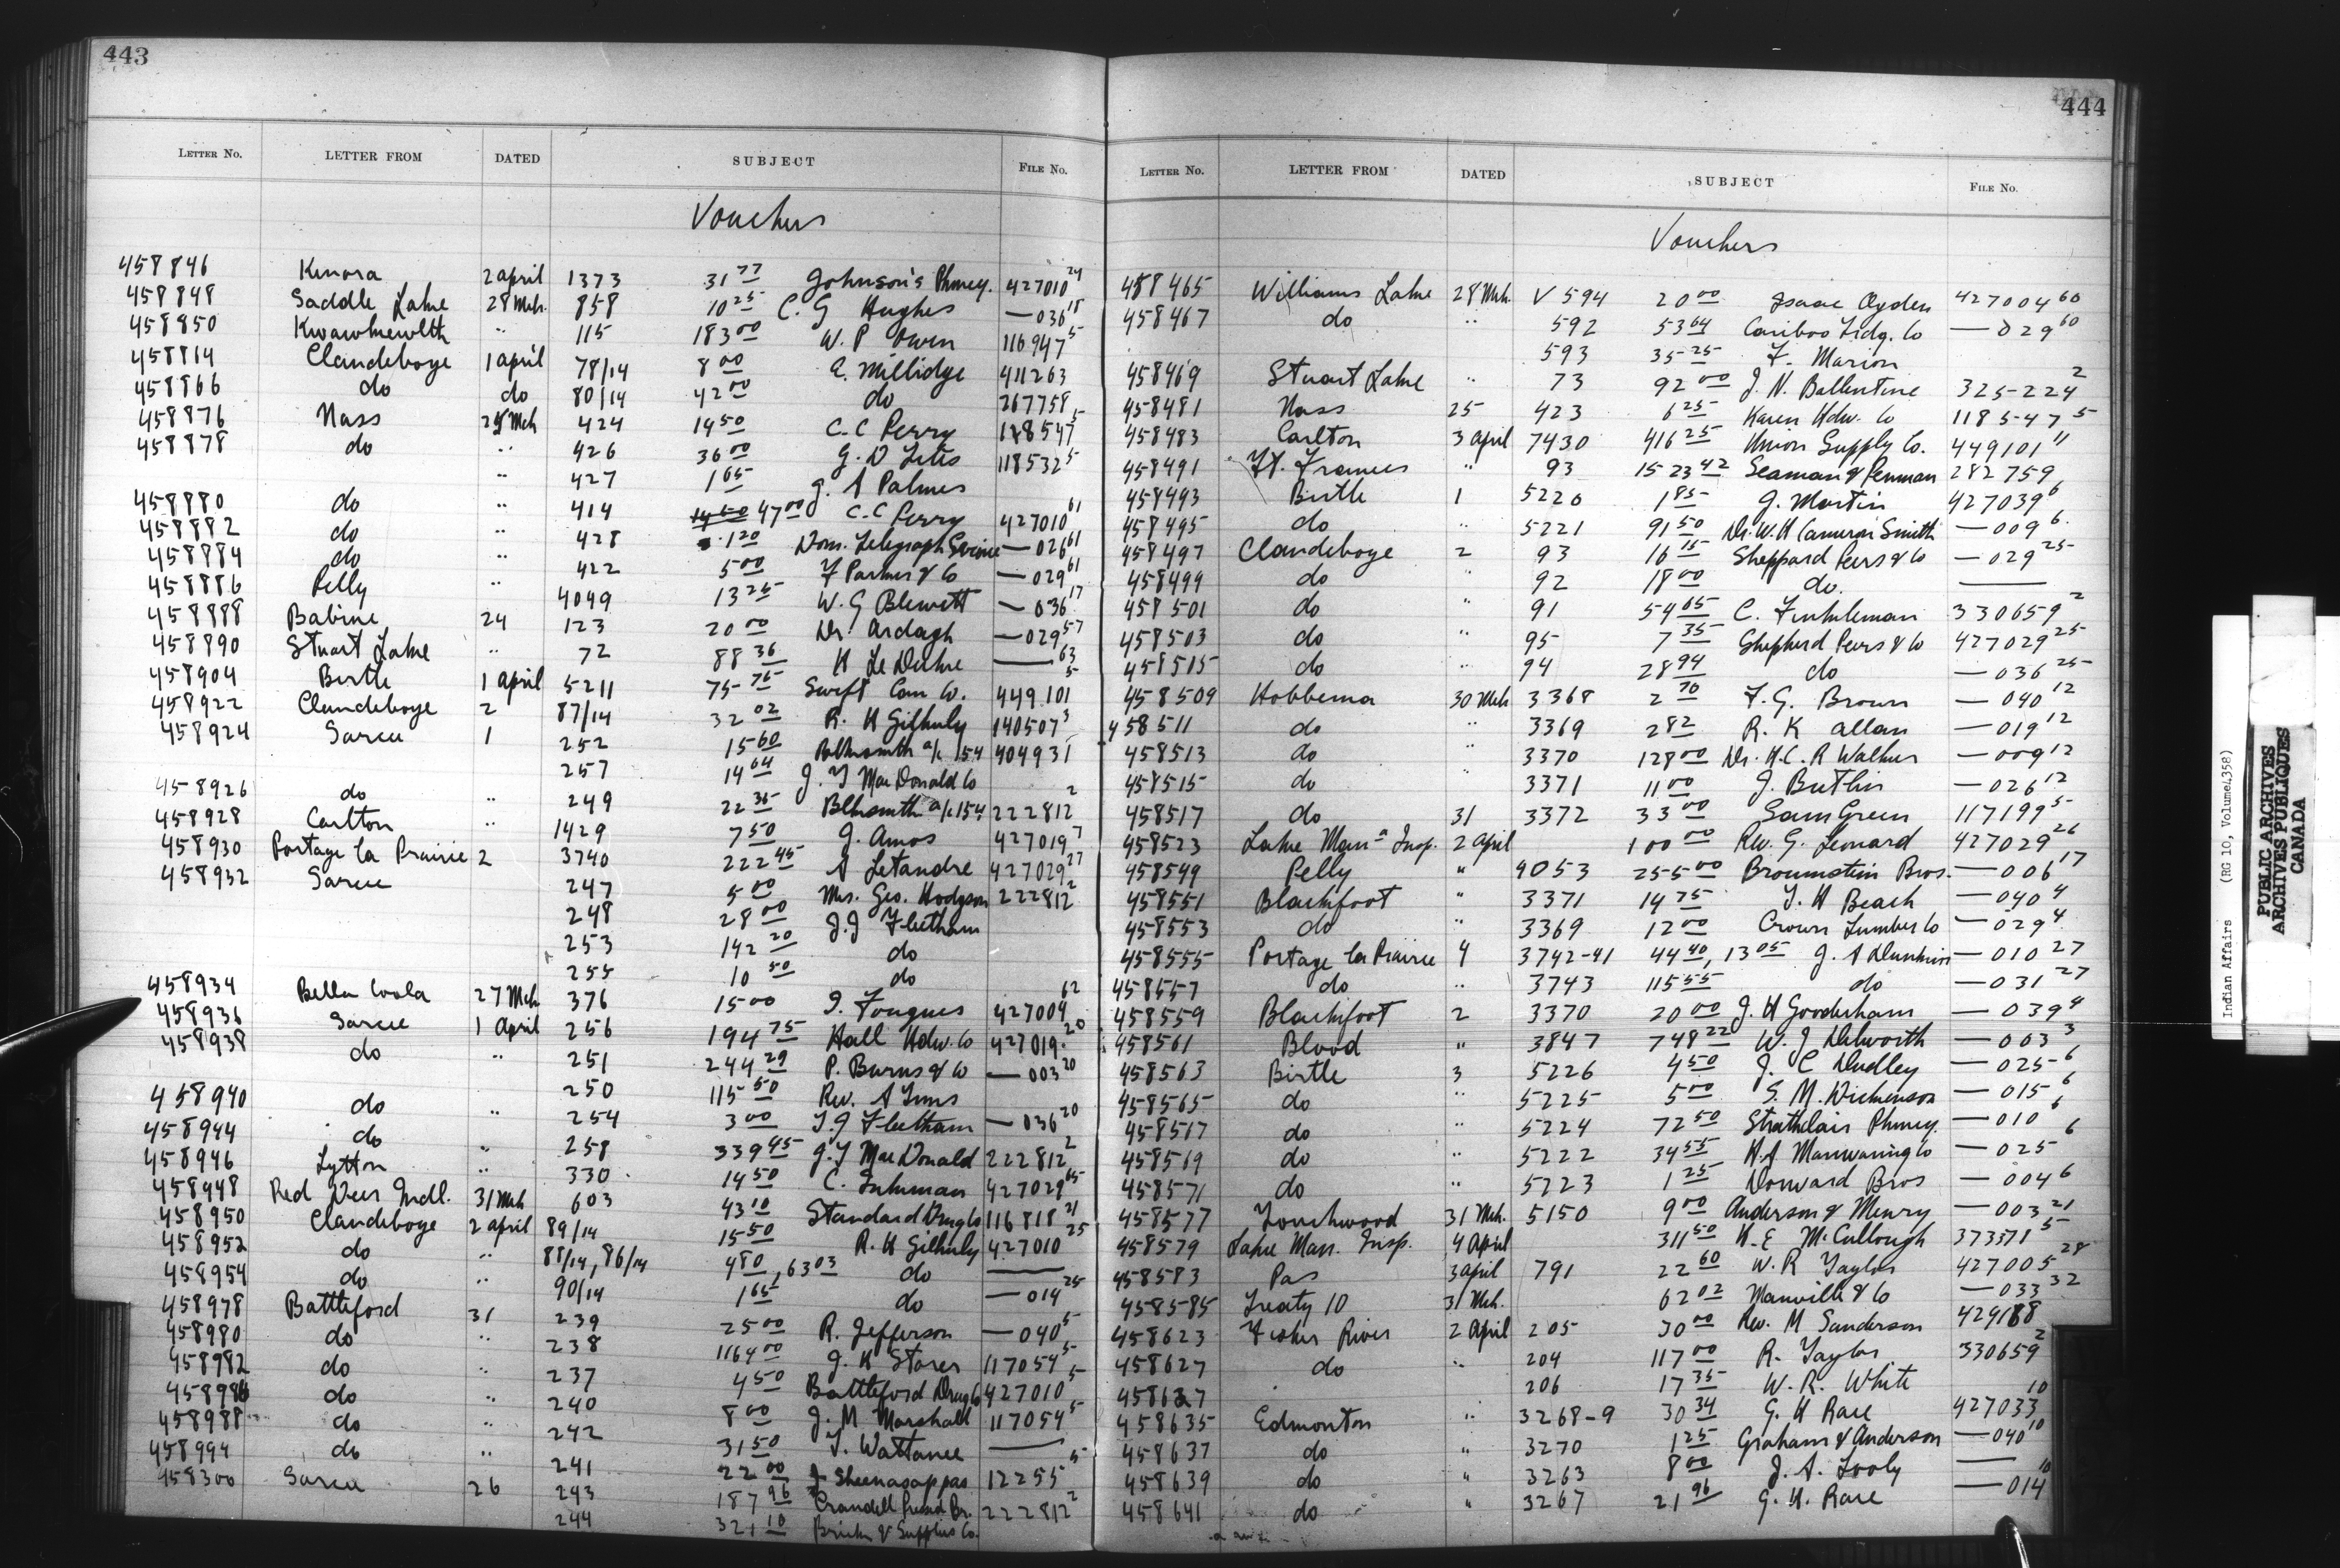 443
LETTER No. LETTER FROM DATED SUBJECT FILE No.
Vouchers
458846 Kenora 2 april 1373 31 77 Johnson's Phmcy. 427010 24
458848 Saddle Lake 28 Mch. 858 10 25 C. G Hughes — 036 18
458850 Kwawkewlth " 115 183 00 W. P Owen 116947 5
458814 Clandeboye 1 april 78/14 8 00 E. Millidge 411263
458866 do do 80/14 42 00 do 267758
458876 Nass 25 Mch 424 14 50 C. C Perry 118547 5
458878 do " 426 36 00 G. D 118532 5
" 427 1 65 J. A Palmer
458880 do " 414 14 50 47 00 C. C Perry 427010 61
458882 do " 428 1 20 Dom. Telegraph Service — 026 61
458884 do " 422 5 00 F Parker & Co — 029 61
458886 Pelly " 4049 13 25 W. G Blewett — 036 17
458888 Babine 24 123 20 00 Dr. Ardagh — 029 57
458890 Stuart Lake " 72 88 36 —— 63
458904 Birtle 1 April 5211 75 75 Swift Can Co. 449.101 5
458922 Clandeboye 2 87/14 32 02 R. H Gilhuly 140507 3
458924 Sarcee 1 252 15 60 Blksmith a/c 154 404931
257 14 64 J. Y MacDonald Co
458926 do " 249 22 35 Blksmith a/c 154 222812 2
458928 Carlton " 1429 7 50 J. Amos 427019 7
458930 Portage la Prairie 2 3740 222 45 A Letandre 427029 27
458932 Sarcee 247 5 00 Mrs. Geo. Hodgson 222812 2
248 28 00 J. J Fleetham
253 142 20 do
255 10 50 do
458934 Bella Coola 27 Mch 376 15 00 S. Fougner 427009 62
458936 Sarcee 1 April 256 194 75 Hall Hdw. Co 427019. 20
458938 do " 251 244 29 P. Burns & Co — 003 20
250 115 50 Rev. A Tims
458940 do " 254 3 00 T. J Fleetham — 036 20
458944 do " 258 339 45 J. Y MacDonald 222812 2
458946 Lytton " 330 14 50 C. 427029 65
458948 Red Deer Indl. 31 Mch 603 43 10 Standard Drug Co 116818 21
458950 Clandeboye 2 april 89/14 15 50 R. H Gilhuly 427010 25
458952 do " 88/14, 86/14 4 80, 63 03 do ——
458954 do " 90/14 1 65 do — 014 25
458978 Battleford 31 239 25 00 R. Jefferson — 040 5
458980 do " 238 1164 00 J. H Storer 117054 5
458982 do " 237 4 50 Battleford Drug Co 427010 5
458986 do " 240 8 00 J. M Marshall 117054 5
458988 do " 242 31 50 T. Wattanee ——
458994 do " 241 22 00 J Sheenasappas 12255 5
458300 Sarcee 26 243 187 96 Crandell Pressed Br. 222812 2
244 321 10 Brick & Supplies Co.
444
LETTER No. LETTER FROM DATED SUBJECT FILE No.
Vouchers
458465 Williams Lake 28 Mch. V 594 20 00 Isaac Ogden 427004 60
458467 do " 592 53 64 Cariboo Trdg. Co — 029 60
593 35 25 F. Marion
458469 Stuart Lake " 73 92 00 J. N. Ballentine 325224 2
458481 Nass 25 423 6 25 Karen Hdw. Co 118547 5
458483 Carlton 3 april 7430 416 25 Union Supply Co. 449101 11
458491 Ft. Frances " 93 1523 42 Seaman & Penman 282759
458493 Birtle 1 5220 1 85 J. Martin 427039 6
458495 do " 5221 91 50 Dr. W. H Cameron Smith — 009 6
458497 Clandeboye 2 93 16 15 Sheppard Peers & Co — 029 25
458499 do " 92 18 00 do. ——
458501 do " 91 54 65 C. Finkleman 330659 2
458503 do " 95 7 35 Shepherd Peers & Co 427029 25
458515 do " 94 28 94 do — 036 25
458509 Hobbema 30 Mch 3368 2 70 F. G. Brown — 040 12
458511 do " 3369 2 82 R. K allan — 019 12
458513 do " 3370 128 00 Dr. H. C. R Walker — 009 12
458515 do " 3371 11 00 J. Butlin — 026 12
458517 do 31 3372 33 00 Sam Green 117199 5
458523 Lake Mana Insp. 2 april 100 00 Rev. G. Leonard 427029 26
458549 Pelly " 4053 255 00 Brounstein Bros. — 006 17
458551 Blackfoot " 3371 14 75 T. H Beach — 040 4
458553 do " 3369 12 00 Crown Lumber Co — 029 4
458555 Portage la Prairie 4 3742-41 44 40, 13 05 J. A — 010 27
458557 do " 3743 115 55 do — 031 27
458559 Blackfoot 2 3370 20 00 J. H Gooderham — 039 4
458561 Blood " 3847 748 22 W. J Dilworth — 003 3
458563 Birtle 3 5226 4 50 J. C Dudley — 025 6
458565 do " 5225 5 00 S. M. Dickenson — 015 6
458517 do " 5224 72 50 Strathclair Phmcy. — 010 6
458569 do " 5222 34 55 H. A Manwaring Co — 025 6
458571 do " 5223 1 25 Dorward Bros — 004 6
458577 Touchwood 31 Mch. 5150 9 00 Anderson & Menry — 003 21
458579 Lake Man. Insp. 4 April 311 50 H. E McCullough 373371 5
458583 Pas 3 april 791 22 60 W. R Taylor 427005 28
458585 Treaty 10 31 Mch. 62 02 Manville & Co — 033 32
458623 Fisher River 2 April 205 30 00 Rev. M Sanderson 429188
458627 do " 204 117 00 R. Taylor 330659 2
458627 206 17 35 W. R. White
458635 Edmonton " 3268-9 30 34 G. H Race 427033 10
458637 do " 3270 1 25 Graham & Anderson — 040 10
458639 do " 3263 8 00 J. A. ——
458641 do " 3267 21 96 G. H. Race — 014 10
Indian Affairs (RG 10, Volume 4358)
PUBLIC ARCHIVES
ARCHIVES PUBLIQUES
CANADA